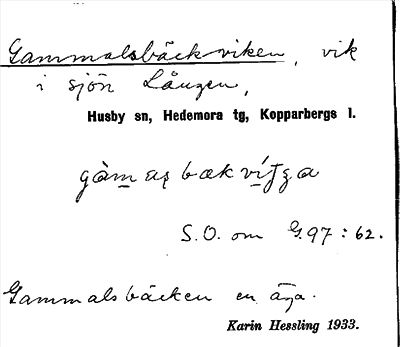 Gammalsbäckviken, vik
i sjön Lången,
Husby sn, Hedemora tg, Kopparbergs l.
S.O. om G.97 : 62.
Gammalsbäcken en äga.
Karin Hessling 1933.